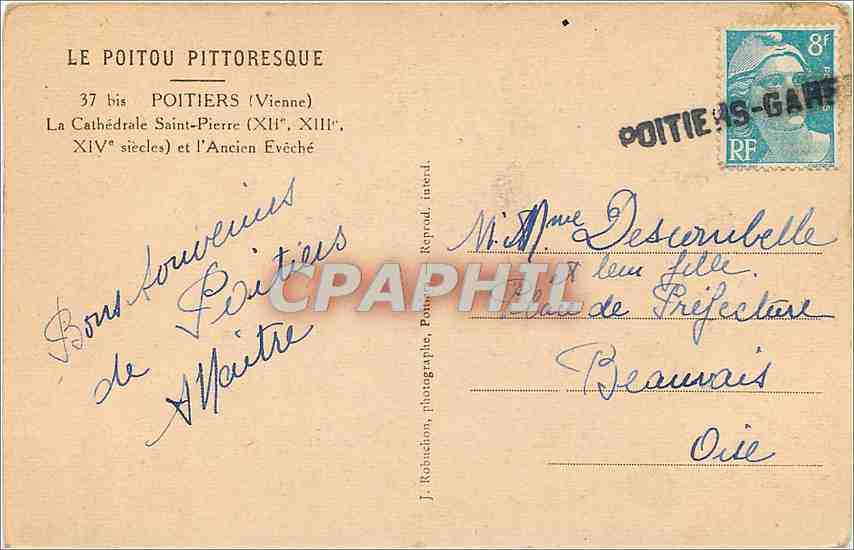 LE POITOU PITTORESQUE
37 bis POITIERS (Vienne)
La Cathédrale Saint-Pierre (XIIe, XIIIe,
XIVe siècles) et l'Ancien Evêché
Bons souvenirs
de Poitiers
A Maitre
J. Robuchon, photographe, Poitiers Reprod. interd.
8f
RF
POITIERS-GARE
CPAPHIL
M. Mme Descombelle
et leur fille.
de Préfecture
Beauvais
Oise